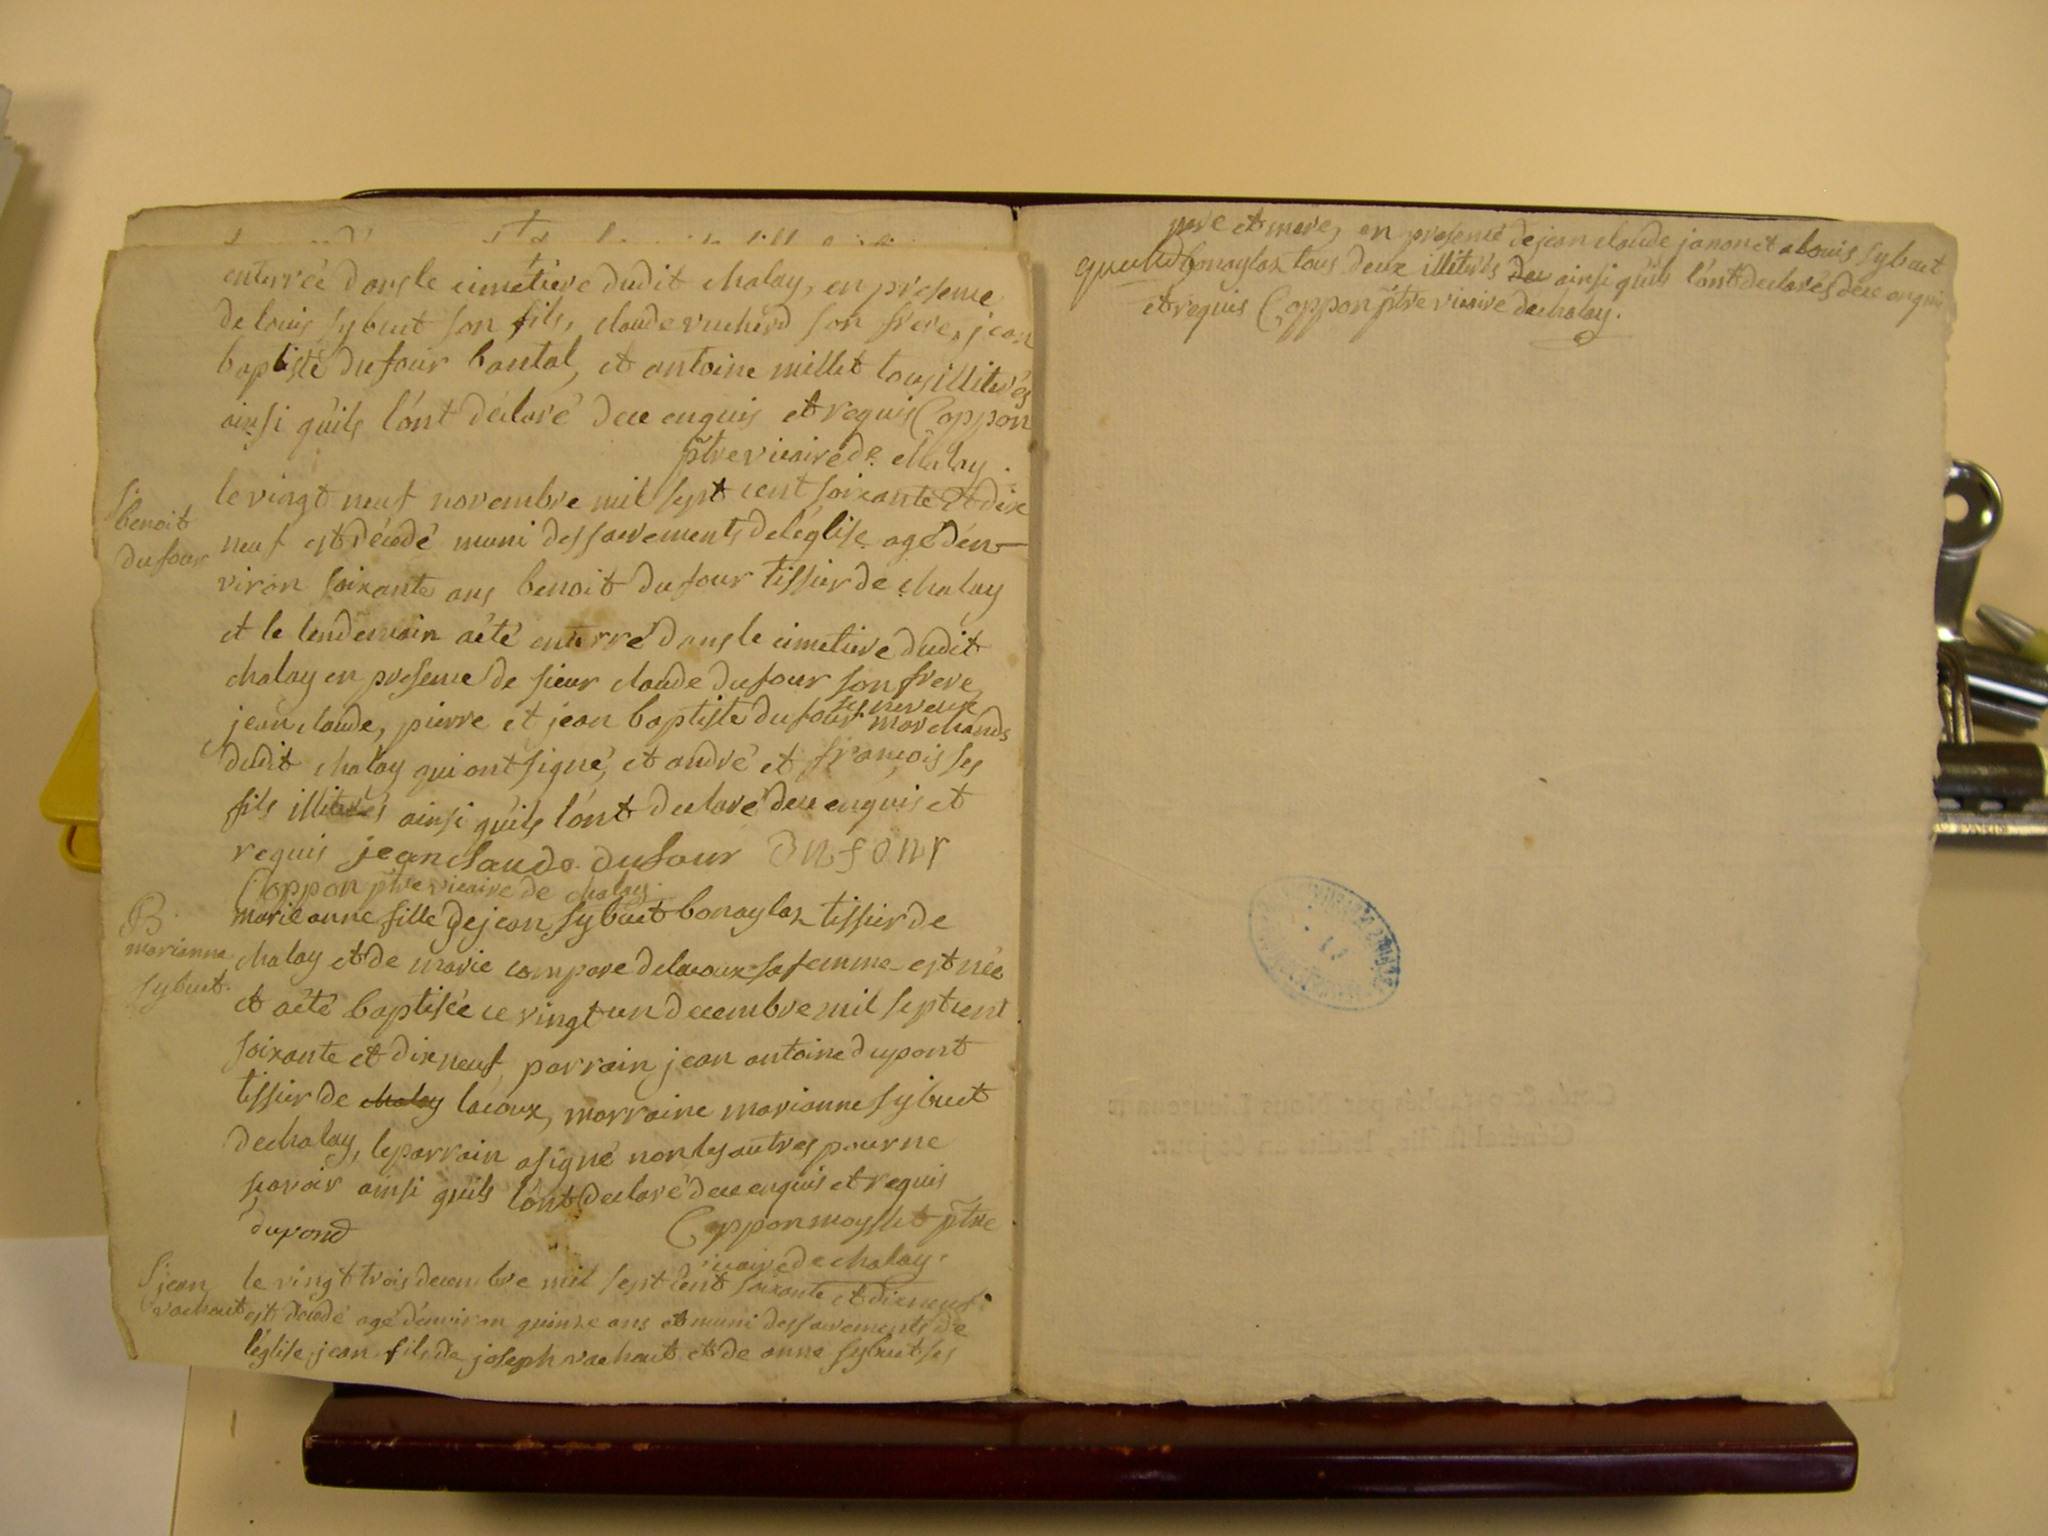 enterrée dans le cimetiere dudit chalay, en presence
de louis sybuet son fils, claude vucherd son frere, jean
baptiste dufour bantal, et antoine millet tous illiterés
ainsi qu'ils l'ont déclaré de ce enquis et requis Coppon
ptre vicaire de chalay.
S benoit
dufour
le vingt neuf novembre mil sept cent soixante et dix
neuf est décédé muni des sacrements de l'église agé d'en
viron soixante ans benoit dufour tissier de chalay
et le lendemain a été enterré dans le cimetiere dudit
chalay en presence de sieur claude dufour son frere
jean claude, pierre et jean baptiste dufour ses neveux marchands
dudit chalay qui ont signé, et andré et françois ses
fils illiterés ainsi qu'ils l'ont declaré de ce enquis et
requis jean claude dufour dufour
Coppon ptre vicaire de chalay.
B.
marianne
sybuet.
marie anne fille de jean sybuet bonaylas tissier de
chalay et de marie compare de lacoux sa femme est née
et a été baptisée ce vingt un decembre mil sept cent
soixante et dix neuf, parrain jean antoine dupont
tissier de chalay lacoux, marraine marianne sybuet
de chalay, le parrain a signé non les autres pour ne
sçavoir ainsi qu'ils l'ont declaré de ce enquis et requis
dupond Coppon ptre
vicaire de chalay.
S jean
vachaut
le vingt trois decembre mil sept cent soixante et dix neuf
est décédé agé d'environ quinze ans et muni des sacrements de
l'église, jean fils de joseph vachaut et de anne sybuet ses
pere et mere, en presence de jean claude janon et a louis sybuet
bonaylas tous deux illiterés de ainsi qu'ils l'ont declarés de ce enquis
et requis Coppon ptre vicaire de chalay.